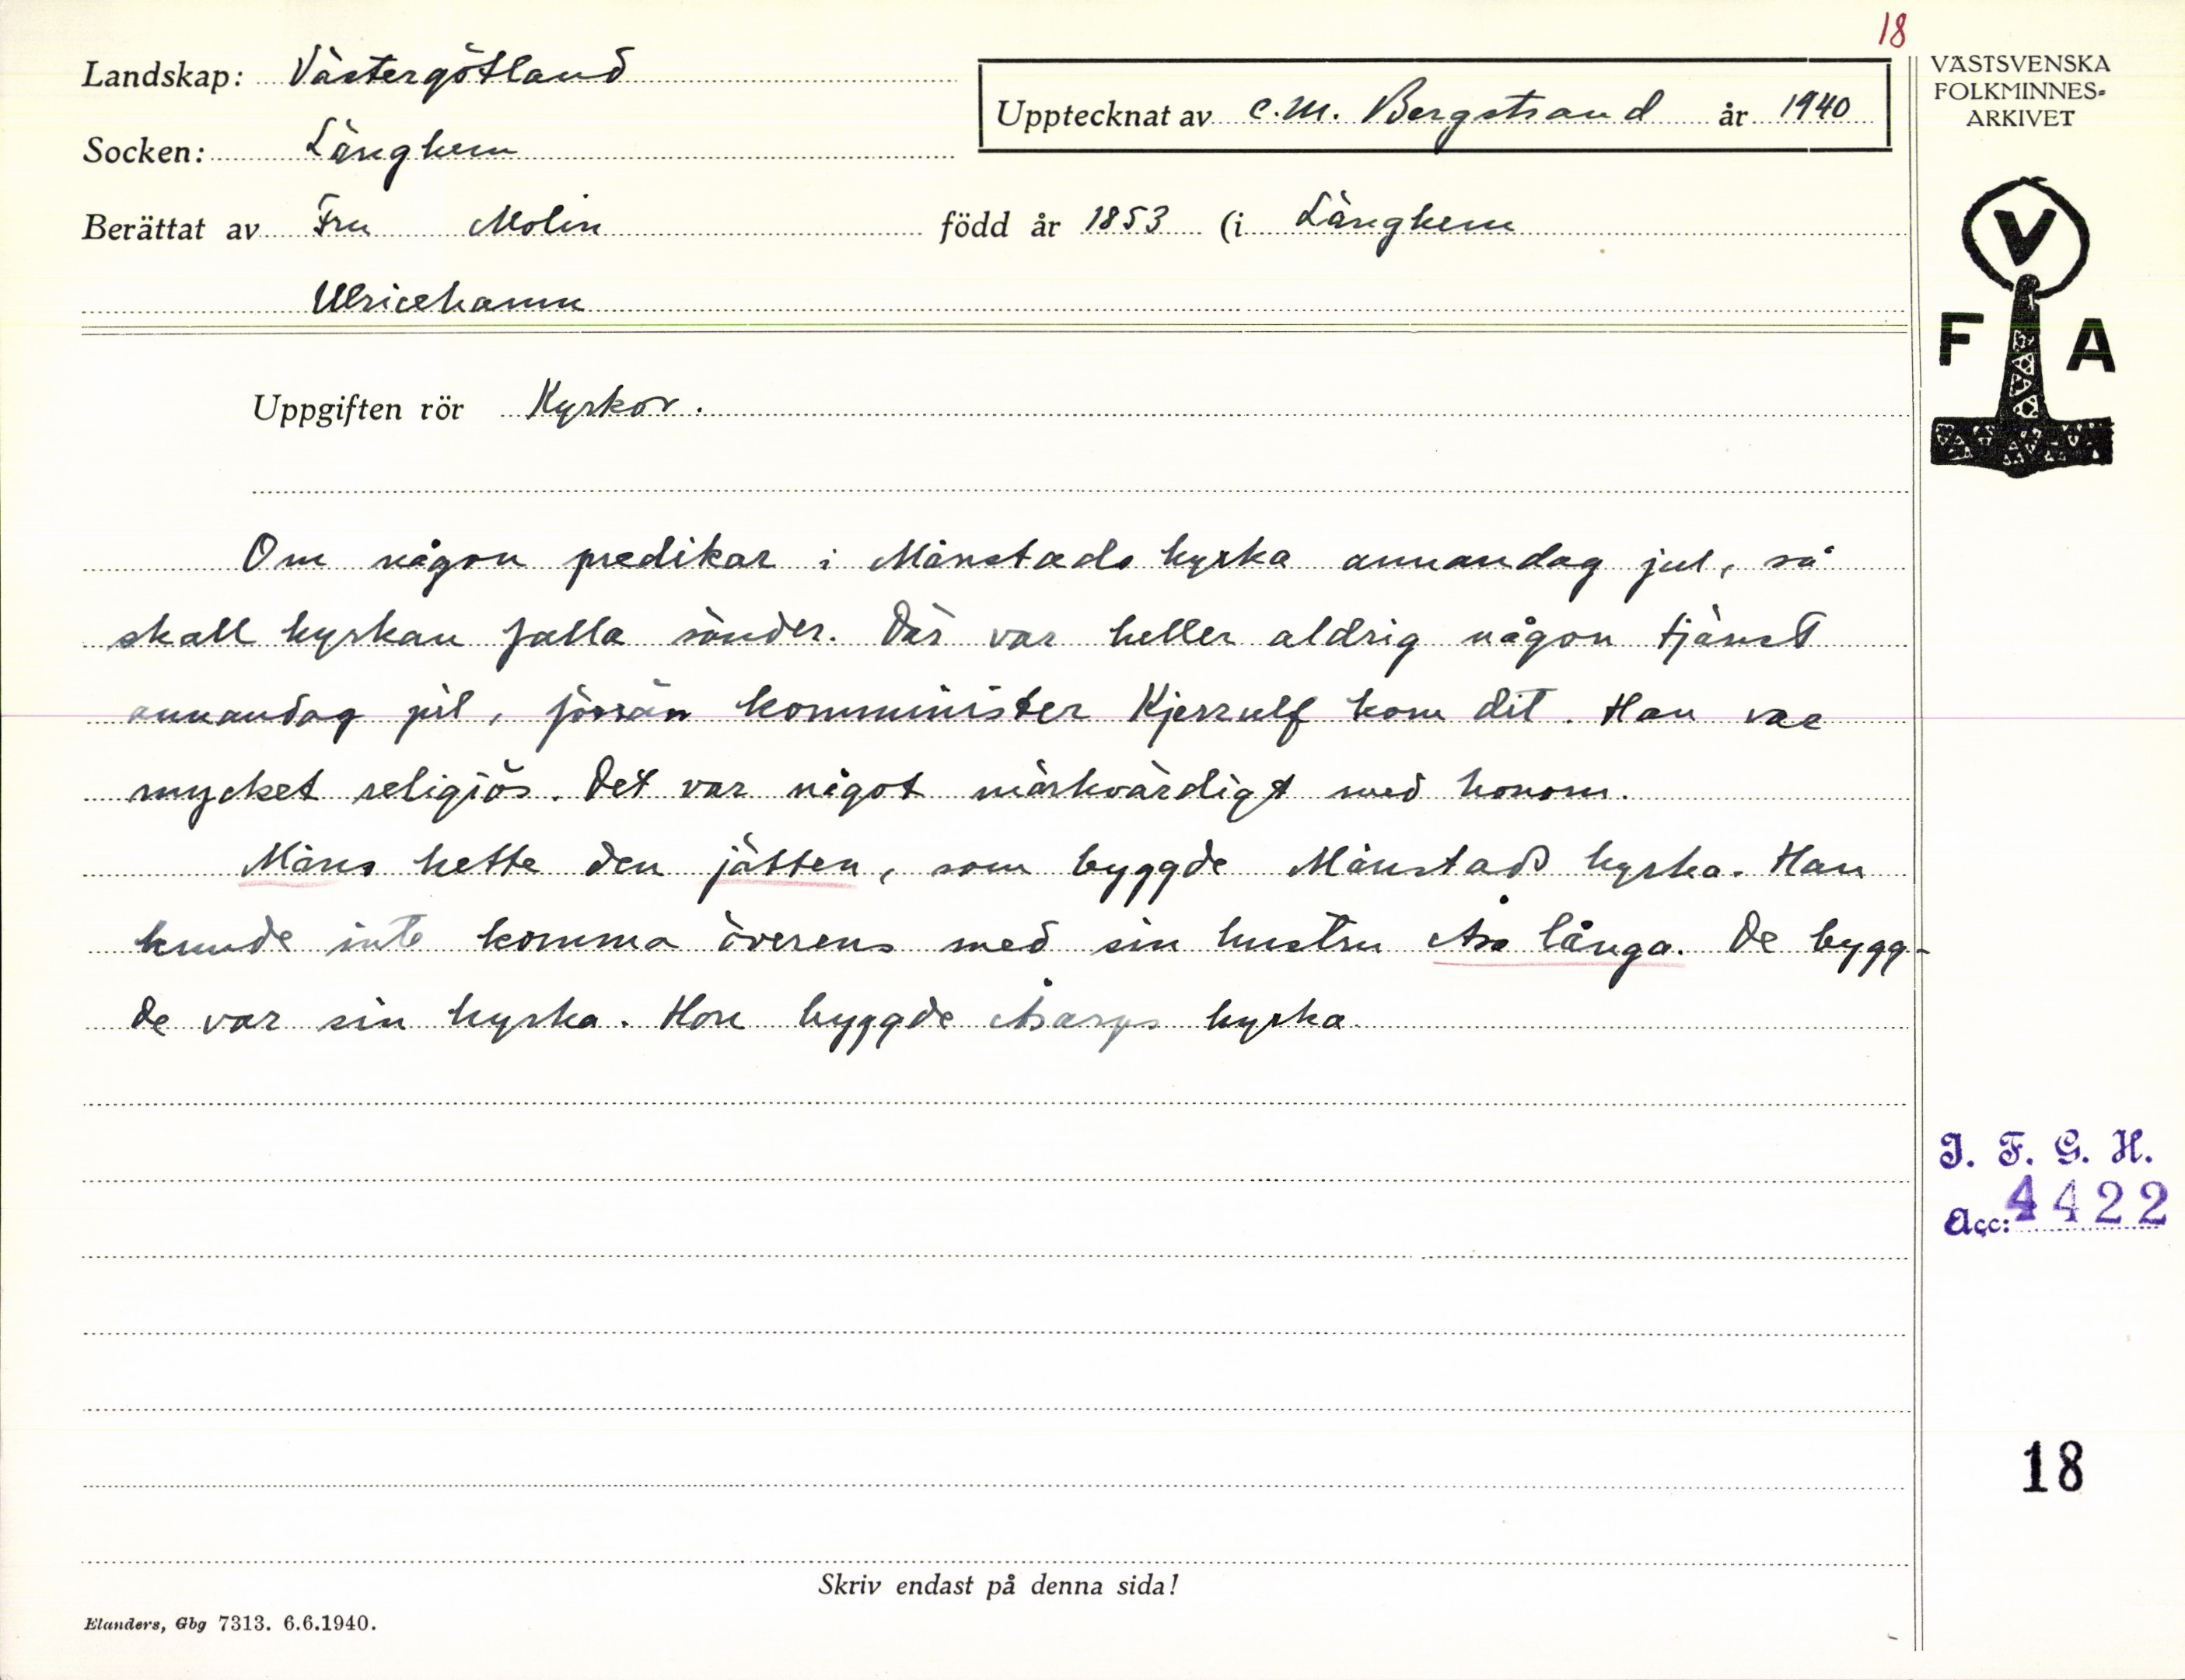 18
Landskap: Västergötland
Upptecknat av C.M. Bergstrand år 1940
VÄSTSVENSKA
FOLKMINNES-
ARKIVET
Socken: Länghem
Berättat av Fru Molin född år 1853 (i Länghem
Ulricehamn
V
F A
Uppgiften rör Kyrkor.
Om någon predikar i Månstads kyrka annandag jul, så
skall kyrkan falla sönder. Där var heller aldrig någon tjänst
annandag jul, förrän komminister Kjerrulf kom dit. Han var
mycket religiös. Det var något märkvärdigt med honom.
Måns hette den jätten, som byggde Månstads kyrka. Han
kunde inte komma överens med sin hustru Åsa långa. De bygg-
de var sin kyrka. Hon byggde Åsarps kyrka.
I. F. G. H.
Acc: 4422
18
Skriv endast på denna sida!
Elanders, Gbg 7313. 6.6.1940.